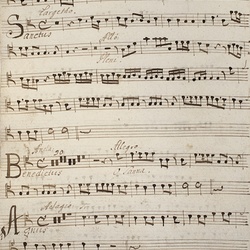 Larghetto.
Sanctus
Allo
Pleni
Allegro
Benedictus
Osanna
Adagio
Agnus